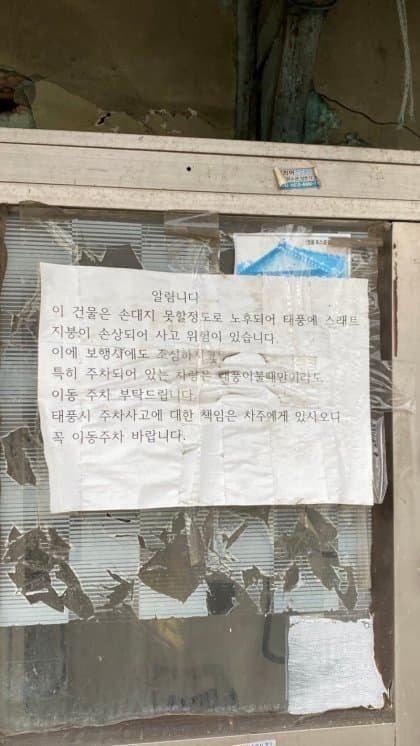 알림니다
이 건물은 손대지 못할정도로 노후되어 태풍에 스래트
지붕이 손상되어 사고 위험이 있습니다.
이에 보행시에도 조심하시고
특히 주차되어 있는 차량은 태풍이불때만이라도
이동 주차 부탁드립니다.
태풍시 주차사고에 대한 책임은 차주에게 있사오니
꼭 이동주차 바랍니다.